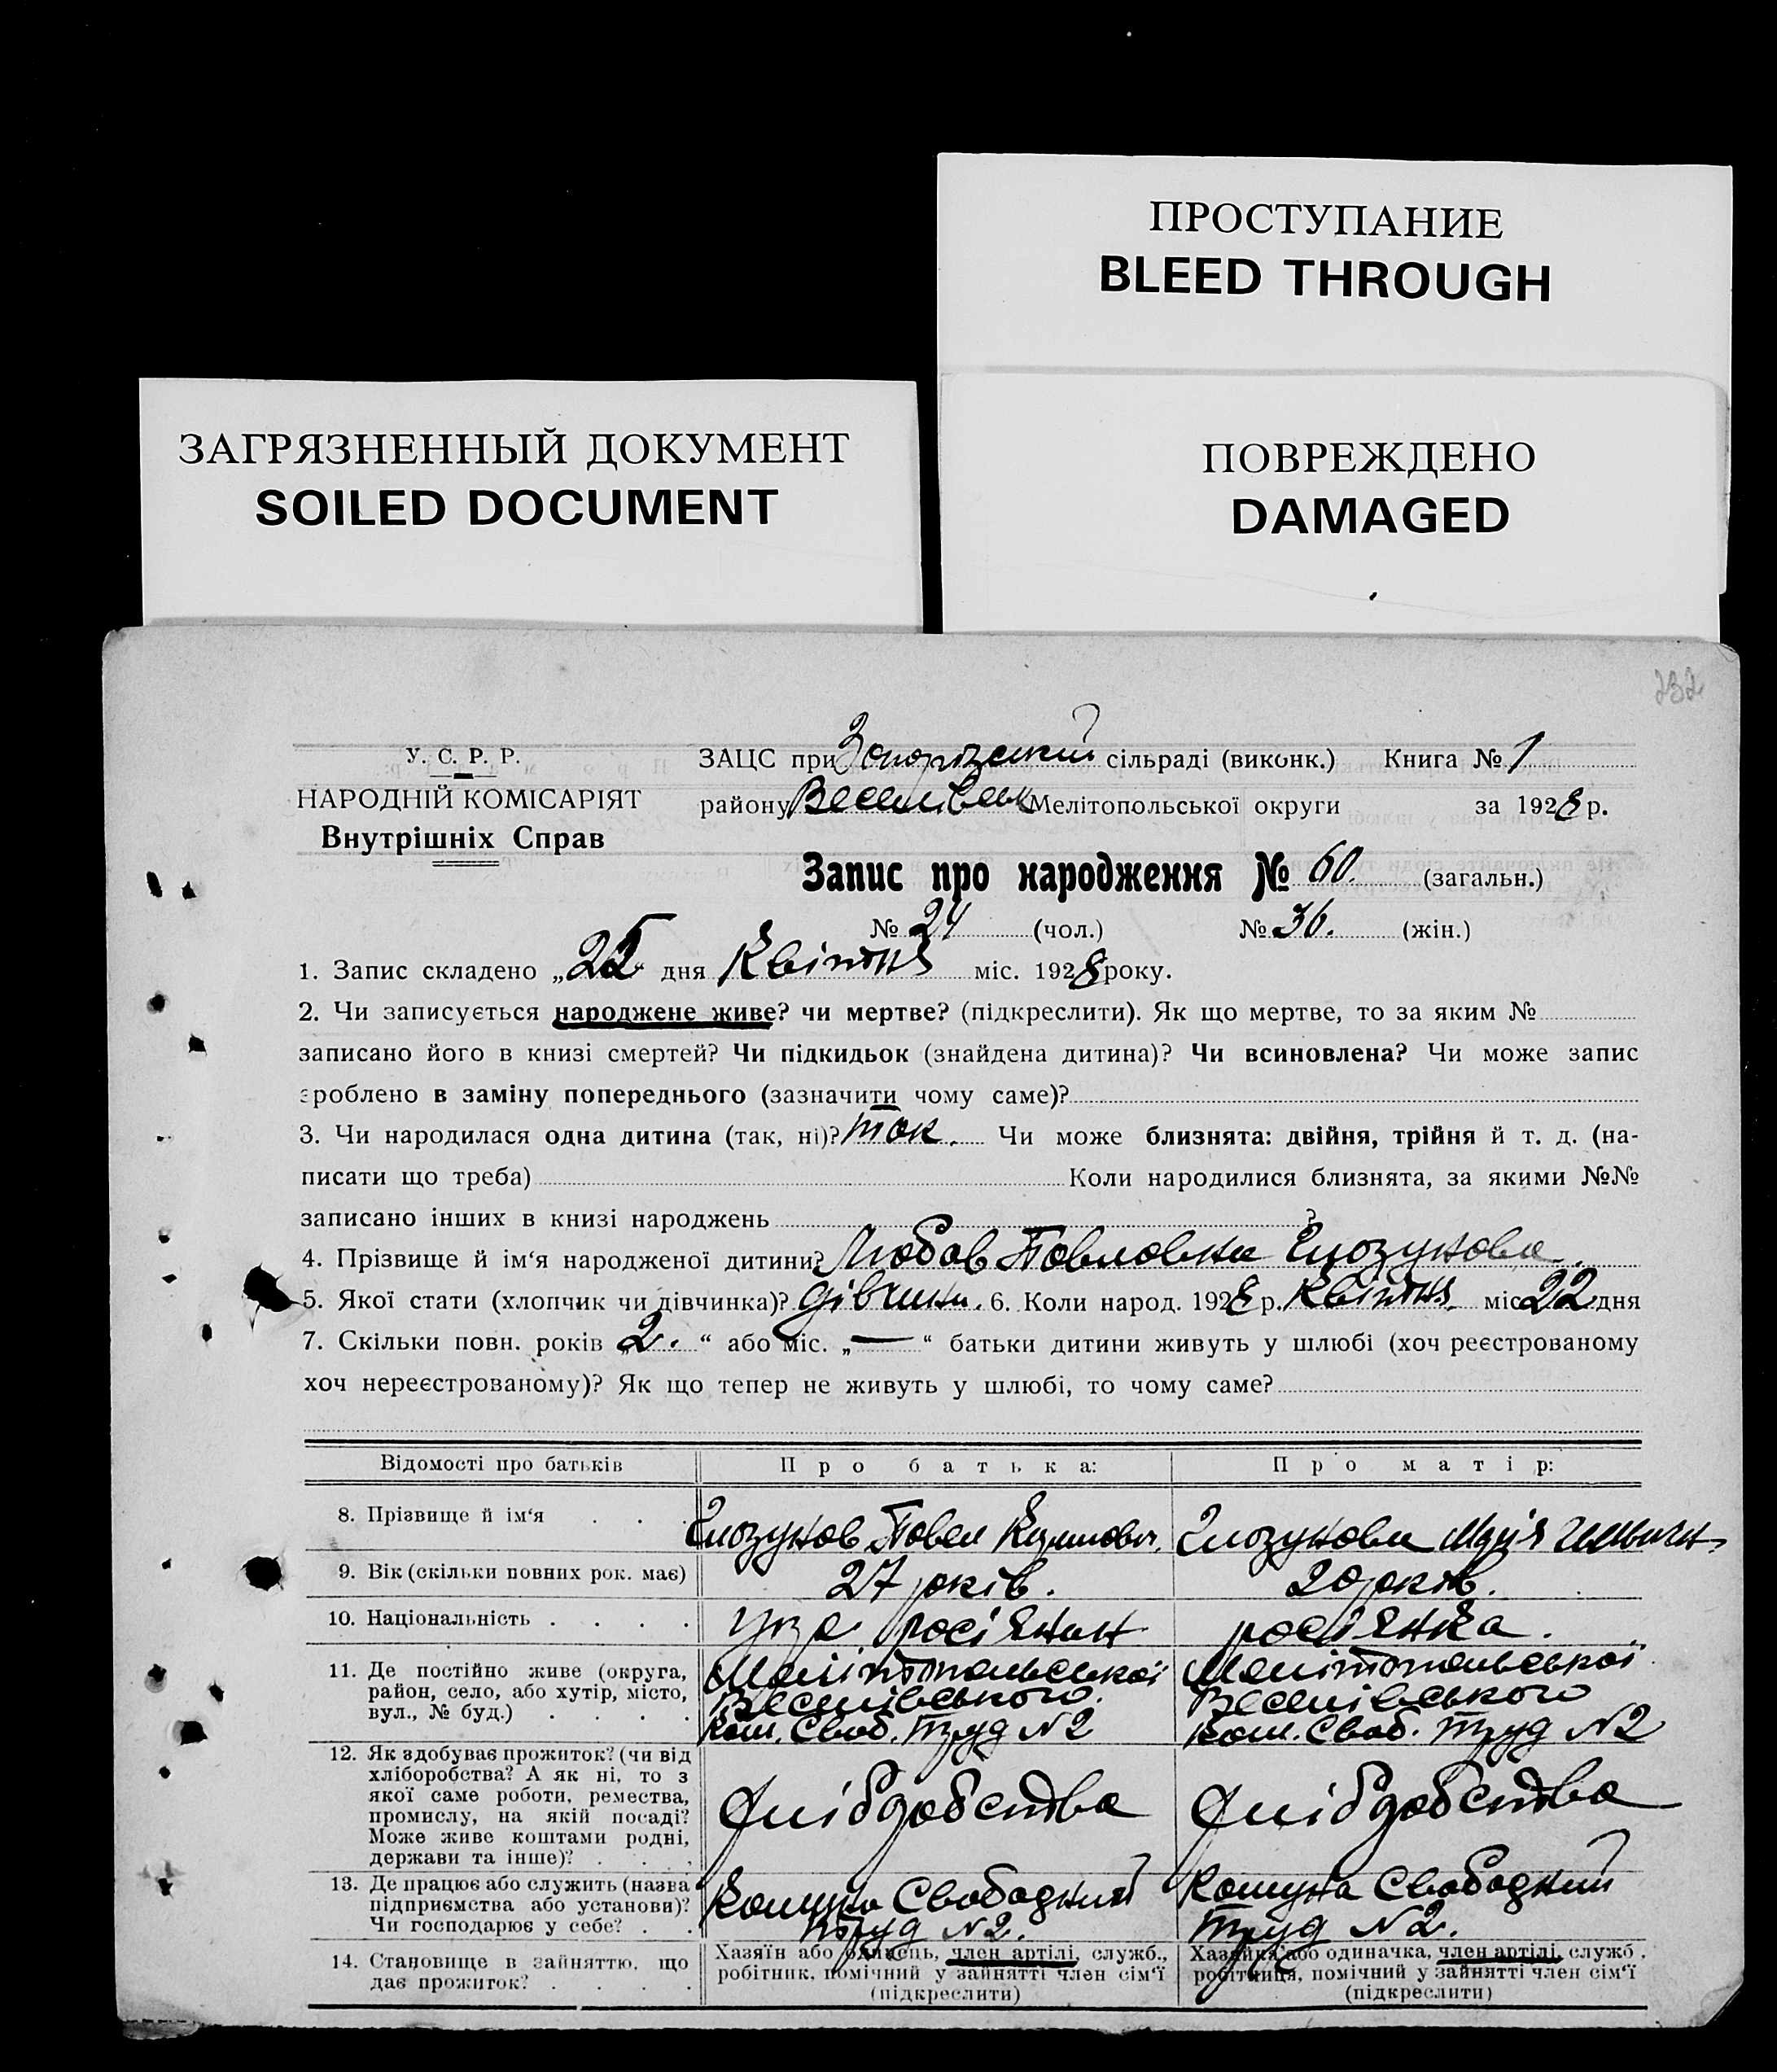 ПРОСТУПАНИЕ
BLEED THROUGH
ЗАГРЯЗНЕННЫЙ ДОКУМЕНТ
SOILED DOCUMENT
ПОВРЕЖДЕНО
DAMAGED
232
У. С. Р. Р.
НАРОДНІЙ КОМІСАРІЯТ
Внутрішніх Справ
ЗАЦС при Запорізській сільраді (виконк.) Книга № 1
району Веселівськ Мелітопольської округи за 1928 р.
Запис про народження № 60. (загальн.)
№ 24 (чол.) № 36. (жін.)
1. Запис складено „25 дня Квітня міс. 1928 року.
2. Чи записується народжене живе? чи мертве? (підкреслити). Як що мертве, то за яким №
записано його в книзі смертей? Чи підкидьок (знайдена дитина)? Чи всиновлена? Чи може запис
зроблено в заміну попереднього (зазначити чому саме)?
3. Чи народилася одна дитина (так, ні)? так. Чи може близнята: двійня, трійня й т. д. (на-
писати що треба) Коли народилися близнята, за якими №№
записано інших в книзі народжень ?
4. Прізвище й ім‘я народженої дитини? Любов Павловна Глозунова
5. Якої стати (хлопчик чи дівчинка)? дівчина. 6. Коли народ. 1928 р. Квітня міс. 22 дня
7. Скільки повн. років „2.“ або міс. „—“ батьки дитини живуть у шлюбі (хоч реєстрованому
хоч нереєстрованому)? Як що тепер не живуть у шлюбі, то чому саме?
Відомості про батьків Про батька: Про матір:
8. Прізвище й ім‘я . . . Глозунов Павел Глозунова Марія
9. Вік (скільки повних рок. має) 27 років. 20 років.
10. Національність . . . . росіянин росіянка.
11. Де постійно живе (округа,
район, село, або хутір, місто,
вул., № буд.) . . . .
Мелітопольської
Веселівського
Ком. Своб. Труд N2
Мелітопольської
Веселівського
Ком. Своб. Труд N2
12. Як здобуває прожиток? (чи від
хліборобства? А як ні, то з
якої саме роботи, ремества,
промислу, на якій посаді?
Може живе коштами родні,
держави та інше)? . . .
Хліборобства
Хліборобства
13. Де працює або служить (назва
підприємства або установи)?
Чи господарює у себе? . .
Комуна Свободний
Труд N2.
Комуна Свободний
Труд N2.
14. Становище в зайняттю, що
дає прожиток? . . . .
Хазяїн або одинець, член артілі, служб.,
робітник, помічний у зайнятті член сім‘ї
(підкреслити)
Хазяйка або одиначка, член артілі, служб.
робітниця, помічний у зайнятті член сім‘ї
(підкреслити)